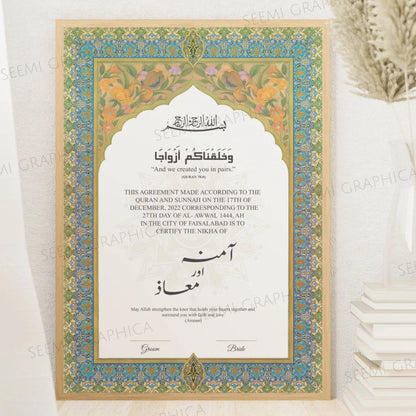 SEEMI GRAPHICA
بسم الله الرحمن الرحيم
وَخَلَقْنَاكُمْ أَزْوَاجًا
"And we created you in pairs."
(QURAN 78:8)
THIS AGREEMENT MADE ACCORDING TO THE
QURAN AND SUNNAH ON THE 17TH OF
DECEMBER, 2022 CORRESPONDING TO THE
27TH DAY OF AL- AWWAL 1444, AH
IN THE CITY OF FAISALABAD IS TO
CERTIFY THE NIKHA OF
آمنہ
اور
معاذ
May Allah strengthen the knot that holds your hearts together and
surround you with faith and love
(Ameen)
Groom Bride